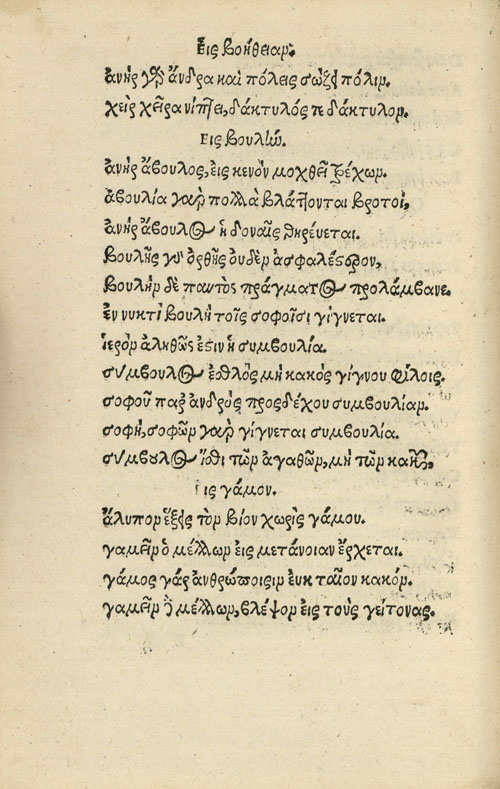 Εις βοήθειαν.
ἀνὴρ γὰρ ἄνδρα καὶ πόλεις σώζει πόλιν.
χεὶρ χεῖρα νίπτει, δάκτυλός τε δάκτυλον.
Εις βουλίω.
ἀνὴρ ἄβουλος, εἰς κενὸν μοχθεῖ τρέχων.
ἀβουλία γὰρ πολλὰ βλάπτονται βροτοί,
ἀνὴρ ἄβουλος ἡδοναῖς θηρεύεται.
βουλῆς γὰρ ὀρθῆς ουδὲν ἀσφαλέστερον,
βουλὴν δὲ παντὸς πράγματος προλάμβανε.
ἐν νυκτὶ βουλὴ τοῖς σοφοῖσι γίγνεται.
ἱερὸν ἀληθῶς ἐστιν ἡ συμβουλία.
σύμβουλος ἐσθλὸς μὴ κακὸς γίγνου φίλοις.
σοφοῦ παρ ἀνδρὸς προςδέχου συμβουλίαν.
σοφὴ, σοφῶν γὰρ γίγνεται συμβουλία.
σύμβουλος ἴσθι τῶν ἀγαθῶν, μὴ τῶν κακῶν,
ις γάμον.
ἄλυπον ἕξεις τὸν βίον χωρὶς γάμου.
γαμεῖν ὁ μέλλων εἰς μετάνοιαν ἔρχεται.
γάμος γάρ ἀνθρώποισιν ἐυκταῖον κακόν.
γαμεῖν μέλλων, βλέψον εἰς τοὺς γείτονας.